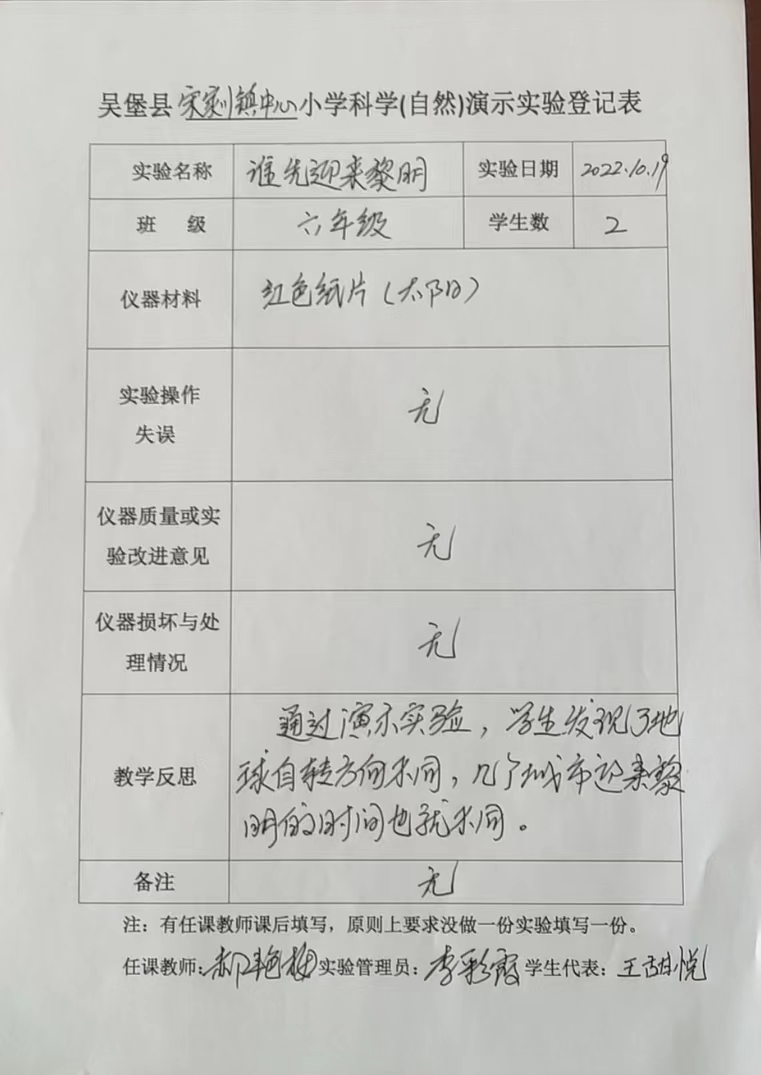 吴堡县宋家川镇中心小学科学(自然)演示实验登记表
实验名称 谁先迎来黎明 实验日期 2022.10.19
班 级 六年级 学生数 2
仪器材料 红色纸片（太阳）
实验操作
失误 无
仪器质量或实
验改进意见 无
仪器损坏与处
理情况 无
通过演示实验，学生发现了地
教学反思 球自转方向不同，几个城市迎来黎
明的时间也就不同。
备注 无
注：有任课教师课后填写，原则上要求没做一份实验填写一份。
任课教师：郝艳梅 实验管理员：李彩霞 学生代表：王甜悦